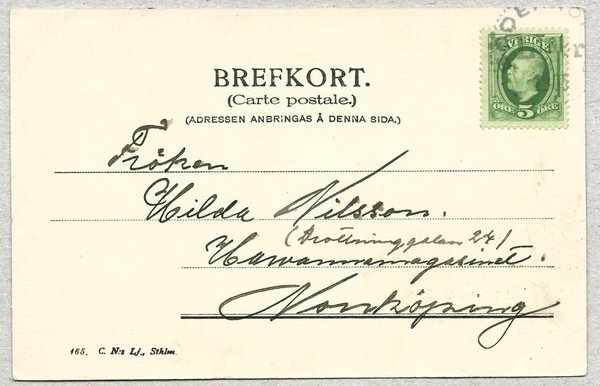 SVERIGE
ÖRE 5 ÖRE
BREFKORT.
(Carte postale.)
(ADRESSEN ANBRINGAS Å DENNA SIDA.)
Fröken
Hilda Nilsson.
(Drottninggatan 24)
Hawannamagasinet.
Norrköping
165. C. N:s Lj., Sthlm.